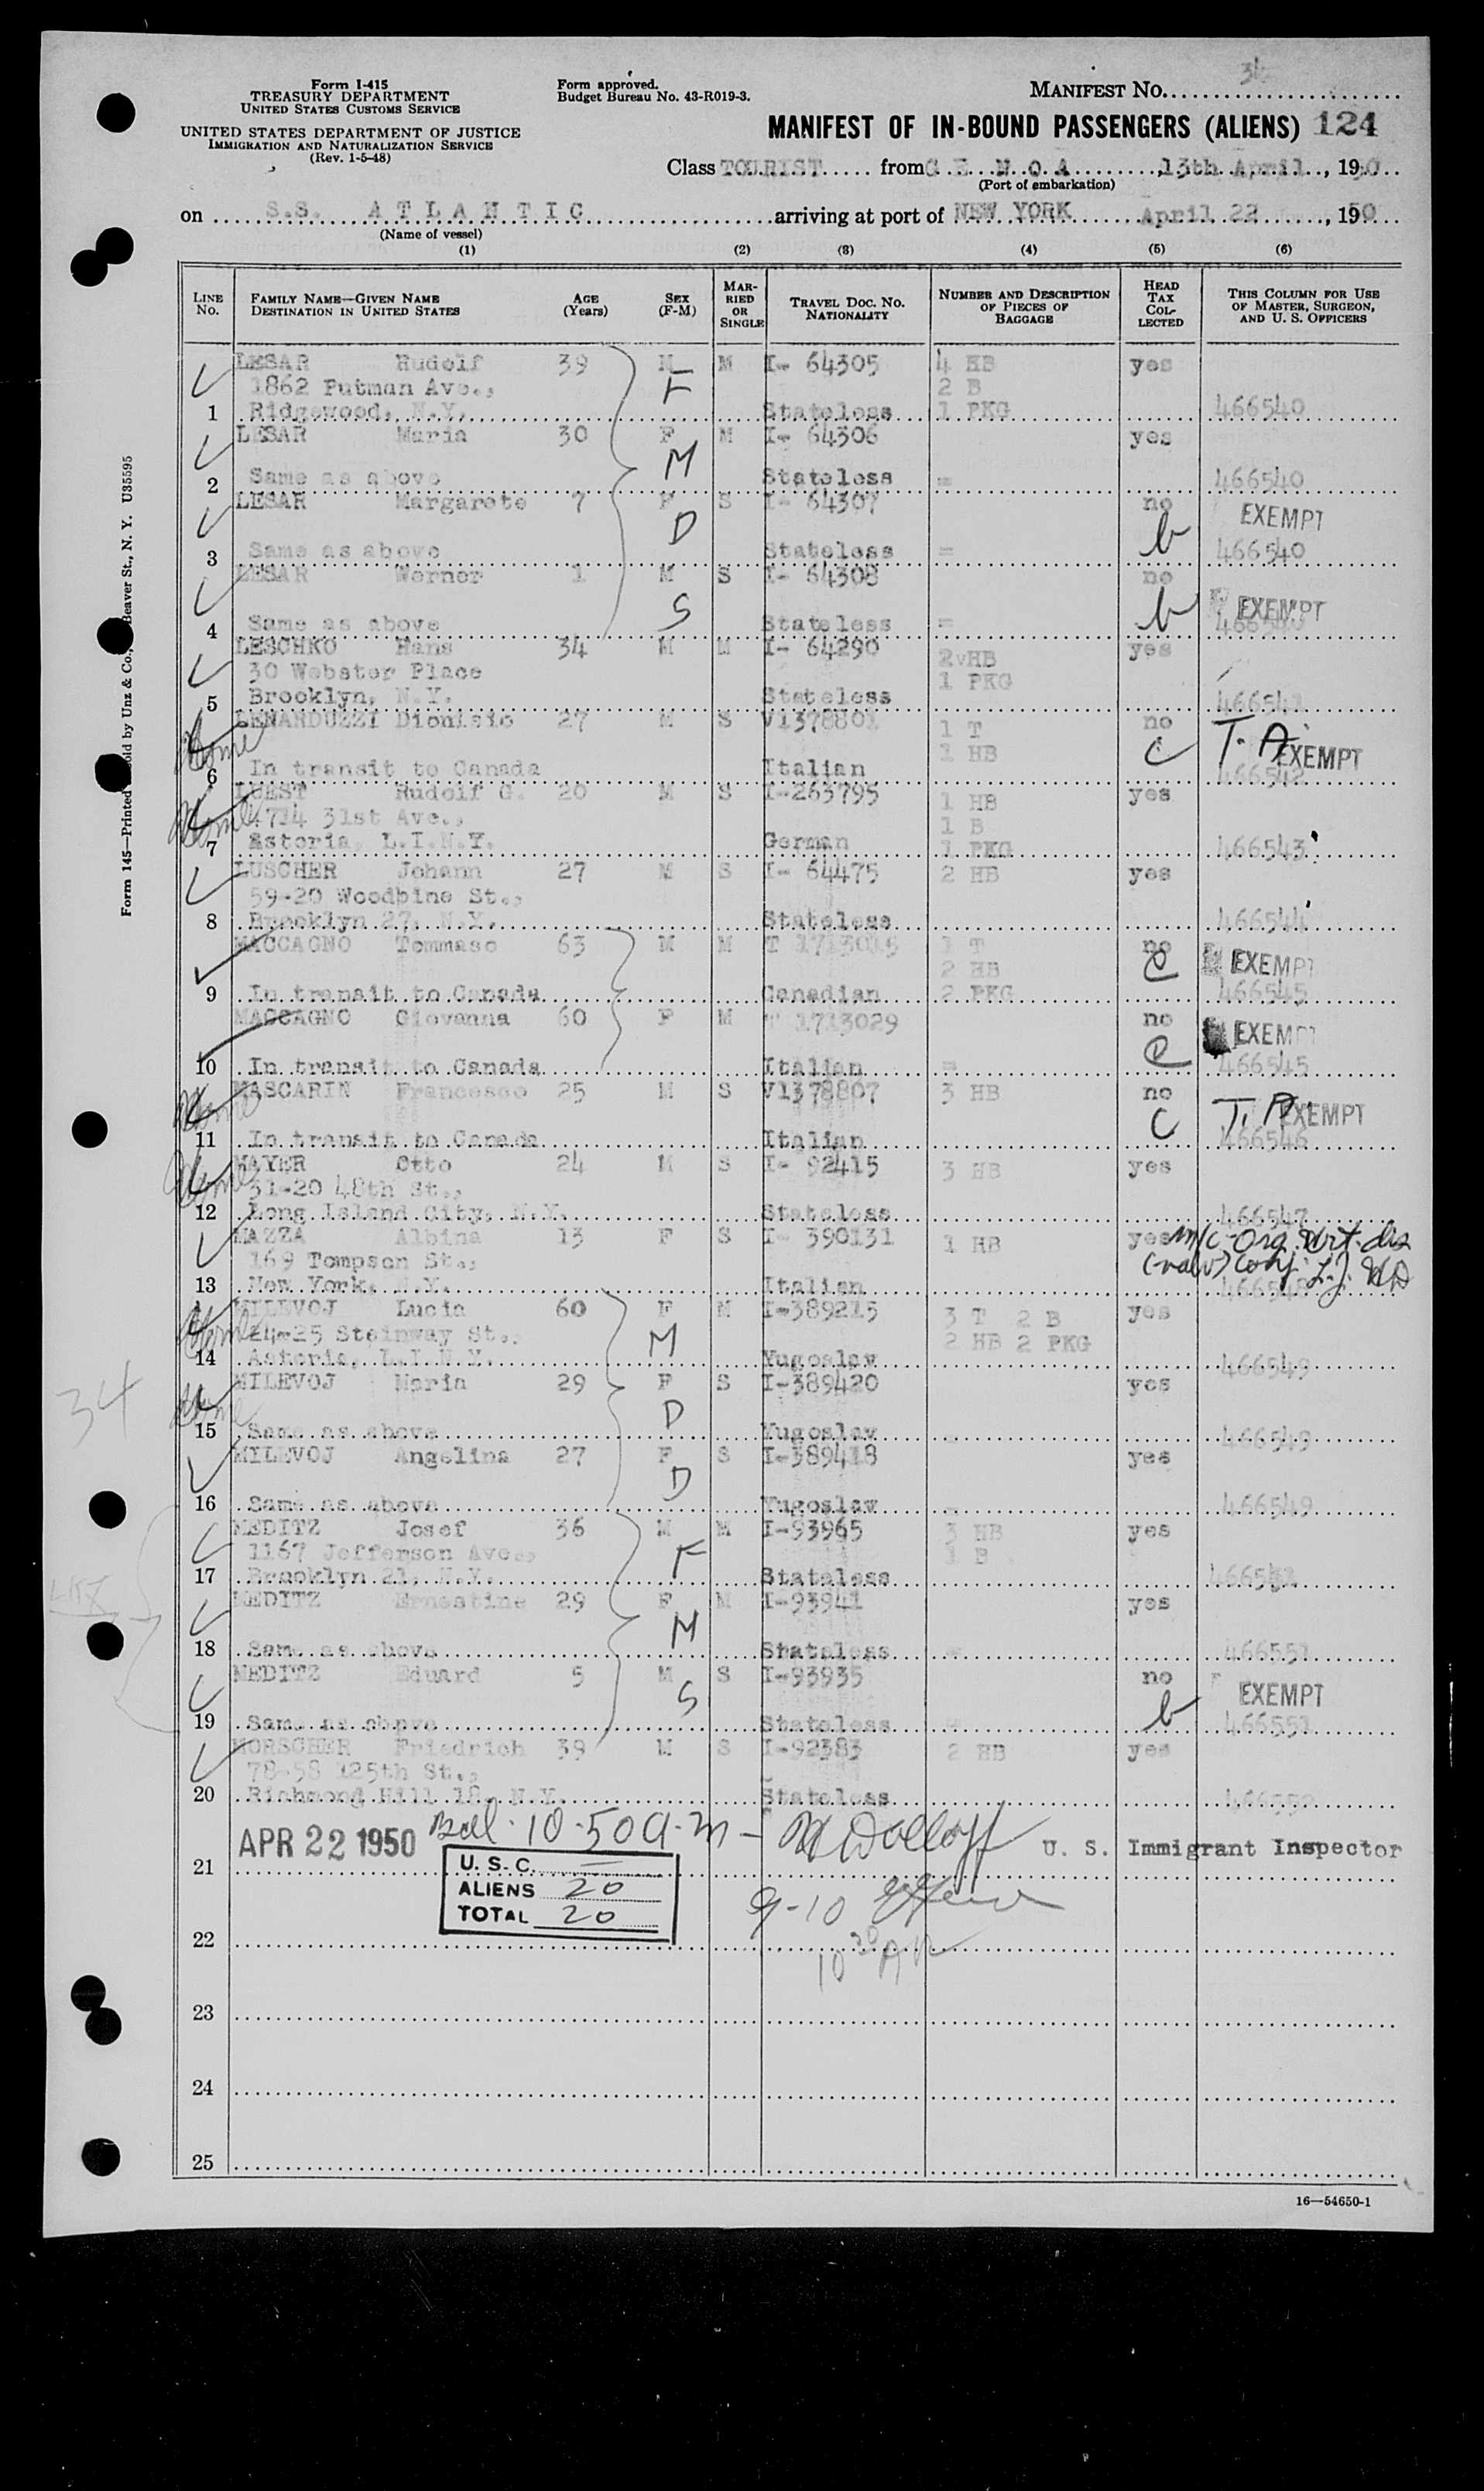 Form I-415
TREASURY DEPARTMENT
UNITED STATES CUSTOMS SERVICE
UNITED STATES DEPARTMENT OF JUSTICE
IMMIGRATION AND NATURALIZATION SERVICE
(Rev. 1-5-48)
Form approved.
Budget Bureau No. 43-R019-3.
MANIFEST NO.
MANIFEST OF IN-BOUND PASSENGERS (ALIENS) 124
Class TOURIST from G E N O A 13th April, 1950
(Port of embarkation)
on S.S. A T L A N T I C arriving at port of NEW YORK April 22, 1950
(Name of vessel)
(1) (2) (3) (4) (5) (6)
LINE No. FAMILY NAME—GIVEN NAME DESTINATION IN UNITED STATES AGE (Years) SEX (F-M) MARRIED OR SINGLE TRAVEL DOC. NO. NATIONALITY NUMBER AND DESCRIPTION OF PIECES OF BAGGAGE HEAD TAX COLLECTED THIS COLUMN FOR USE OF MASTER, SURGEON, AND U. S. OFFICERS
LESAR Rudolf 39 M M I- 64305 4 HB yes
1862 Putman Ave., F 2 B
1 Ridgewood, N.Y. Stateless 1 PKG 466540
LESAR Maria 30 F M I- 64306 yes
M
2 Same as above Stateless = 466540
LESAR Margarete 7 F S I- 64307 no EXEMPT
D b
3 Same as above Stateless = 466540
LESAR Werner 1 M S I- 64308 no
S b EXEMPT
4 Same as above Stateless = 466540
LESCHKO Hans 34 M M I- 64290 2 HB yes
30 Webster Place 1 PKG
5 Brooklyn, N.Y. Stateless 466541
LENARDUZZI Dionisio 27 M S V1378801 1 T no
Home 1 HB C T. A. EXEMPT
6 In transit to Canada Italian 466542
LUEST Rudolf G. 20 M S I-263795 1 HB yes
Home 4714 31st Ave., 1 B
7 Astoria, L.I.N.Y. German 1 PKG 466543
LUSCHER Johann 27 M S I- 64475 2 HB yes
59-20 Woodbine St.,
8 Brooklyn 27, N.Y. Stateless 466544
MACCAGNO Tommaso 63 M M T 1713015 1 T no
2 HB C EXEMPT
9 In transit to Canada Canadian 2 PKG 466545
MACCAGNO Giovanna 60 F M T 1713029 no EXEMPT
C
10 In transit to Canada Italian = 466545
MASCARIN Francesco 25 M S V1378807 3 HB no
Home C EXEMPT
11 In transit to Canada Italian 466546
MAYER Otto 24 M S I- 92415 3 HB yes
Home 31-20 48th St.,
12 Long Island City, N.Y. Stateless 466547
MAZZA Albina 13 F S I- 390131 1 HB yes
169 Tompson St.,
13 New York, N.Y. Italian 466548
MILEVOJ Lucia 60 F M I-389215 3 T 2 B yes
Home 24-25 Steinway St., M 2 HB 2 PKG
14 Astoria, L.I.N.Y. Yugoslav 466549
MILEVOJ Maria 29 F S I-389420 yes
34 Home D
15 Same as above Yugoslav = 466549
MILEVOJ Angelina 27 F S I-389418 yes
D
16 Same as above Yugoslav = 466549
MEDITZ Josef 36 M M I-93965 3 HB yes
1167 Jefferson Ave., F 1 B
17 Brooklyn 21, N.Y. Stateless
MEDITZ Ernestine 29 F M I-93941 yes
M
18 Same as above Stateless = 466551
MEDITZ Eduard 5 M S I-93935 no EXEMPT
S b
19 Same as above Stateless = 466551
MORSCHER Friedrich 39 M S I-92383 2 HB yes
78-58 125th St.,
20 Richmond Hill 18, N.Y. Stateless
APR 22 1950 10.50 a.m — U. S. Immigrant Inspector
21
U. S. C. —
ALIENS 20
TOTAL 20
9-10
22
10 30
23
24
25
16—54650-1
Form 145—Printed Sold by Unz & Co., Beaver St., N. Y. U35595